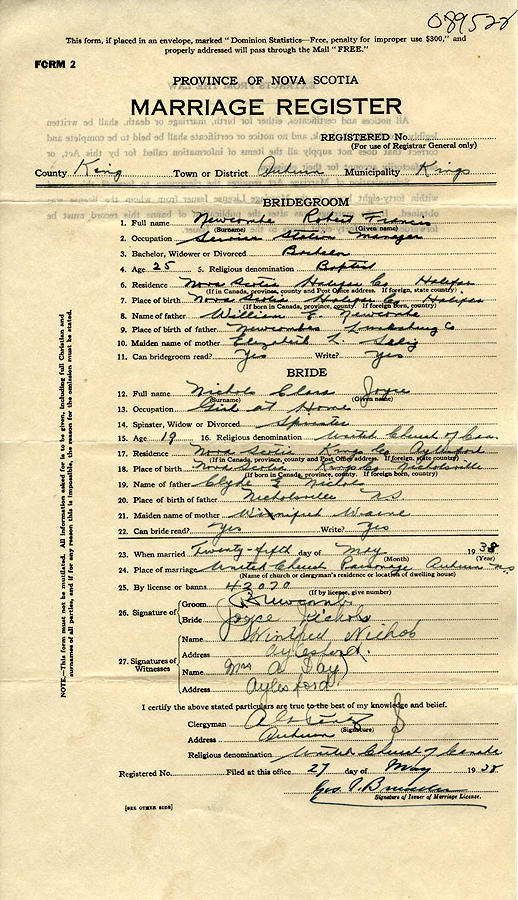 089522
This form, if placed in an envelope, marked "Dominion Statistics—Free, penalty for improper use $300," and
properly addressed will pass through the Mail "FREE."
FORM 2
PROVINCE OF NOVA SCOTIA
MARRIAGE REGISTER
REGISTERED No.
(For use of Registrar General only)
County King Town or District Auburn Municipality Kings
BRIDEGROOM
1. Full name Newcombe Robert Francis
(Surname) (Given name)
2. Occupation Service Station Manager
3. Bachelor, Widower or Divorced Bachelor
4. Age 25 5. Religious denomination Baptist
6. Residence Nova Scotia Halifax Co Halifax
(If in Canada, province, county and Post Office address. If foreign, state country)
7. Place of birth Nova Scotia Halifax Co Halifax
(If born in Canada, province, county. If foreign born, country)
8. Name of father William E. Newcombe
9. Place of birth of father Newcombes Lunenburg Co
10. Maiden name of mother Elizabeth L. Selig
11. Can bridegroom read? Yes Write? Yes
BRIDE
12. Full name Nichols Clara Joyce
(Surname) (Given name)
13. Occupation Girl at Home
14. Spinster, Widow or Divorced Spinster
15. Age 19 16. Religious denomination United Church of Can.
17. Residence Nova Scotia Kings Co Aylesford
(If in Canada, province, county and Post Office address. If foreign, state country)
18. Place of birth Nova Scotia Kings Co Nicholsville
(If born in Canada, province, county. If foreign born, country)
19. Name of father Clyde E Nichols
20. Place of birth of father Nicholsville N.S.
21. Maiden name of mother Winnifred
22. Can bride read? Yes Write? Yes
23. When married Twenty-fifth day of May 1938
(Month) (Year)
24. Place of marriage United Church Parsonage Auburn N.S
(Name of church or clergyman's residence or location of dwelling house)
25. By license or banns 42070
(If by license, give number)
26. Signature of Groom Newcombe
Bride Joyce Nichols
27. Signatures of Witnesses
Name Winifred Nichols
Address Aylesford.
Name Mrs A Day
Address Aylesford
I certify the above stated particulars are true to the best of my knowledge and belief.
Clergyman
(Signature)
Address Auburn
Religious denomination United Church of Canada
Registered No. Filed at this office 27 day of May 1938
Geo.
Signature of Issuer of Marriage License.
[SEE OTHER SIDE]
NOTE.—This form must not be mutilated. All information asked for is to be given, including full Christian and
surnames of all parties, and if for any reason this is impossible, the reason for the omission must be stated.